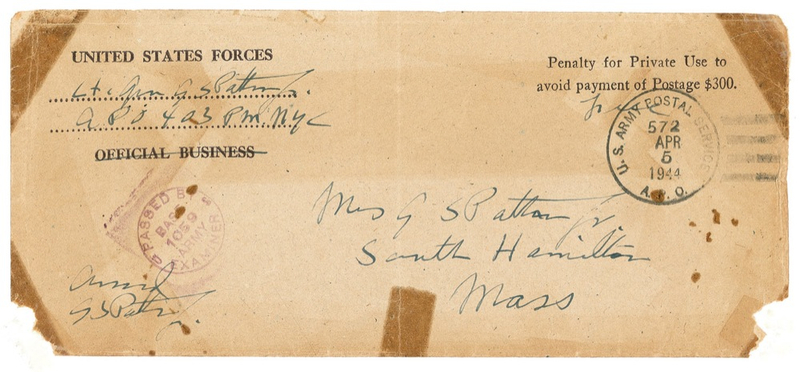 UNITED STATES FORCES
Lt. Gen G S Patton Jr.
APO 403 P.M. NYC
OFFICIAL BUSINESS
Penalty for Private Use to
avoid payment of Postage $300.
free
U. S. ARMY POSTAL SERVICE
572
APR
5
1944
A.P.O.
PASSED BY
BASE
1059
ARMY
EXAMINER
Mrs G S Patton Jr
South Hamilton
Mass
G S Patton Jr.